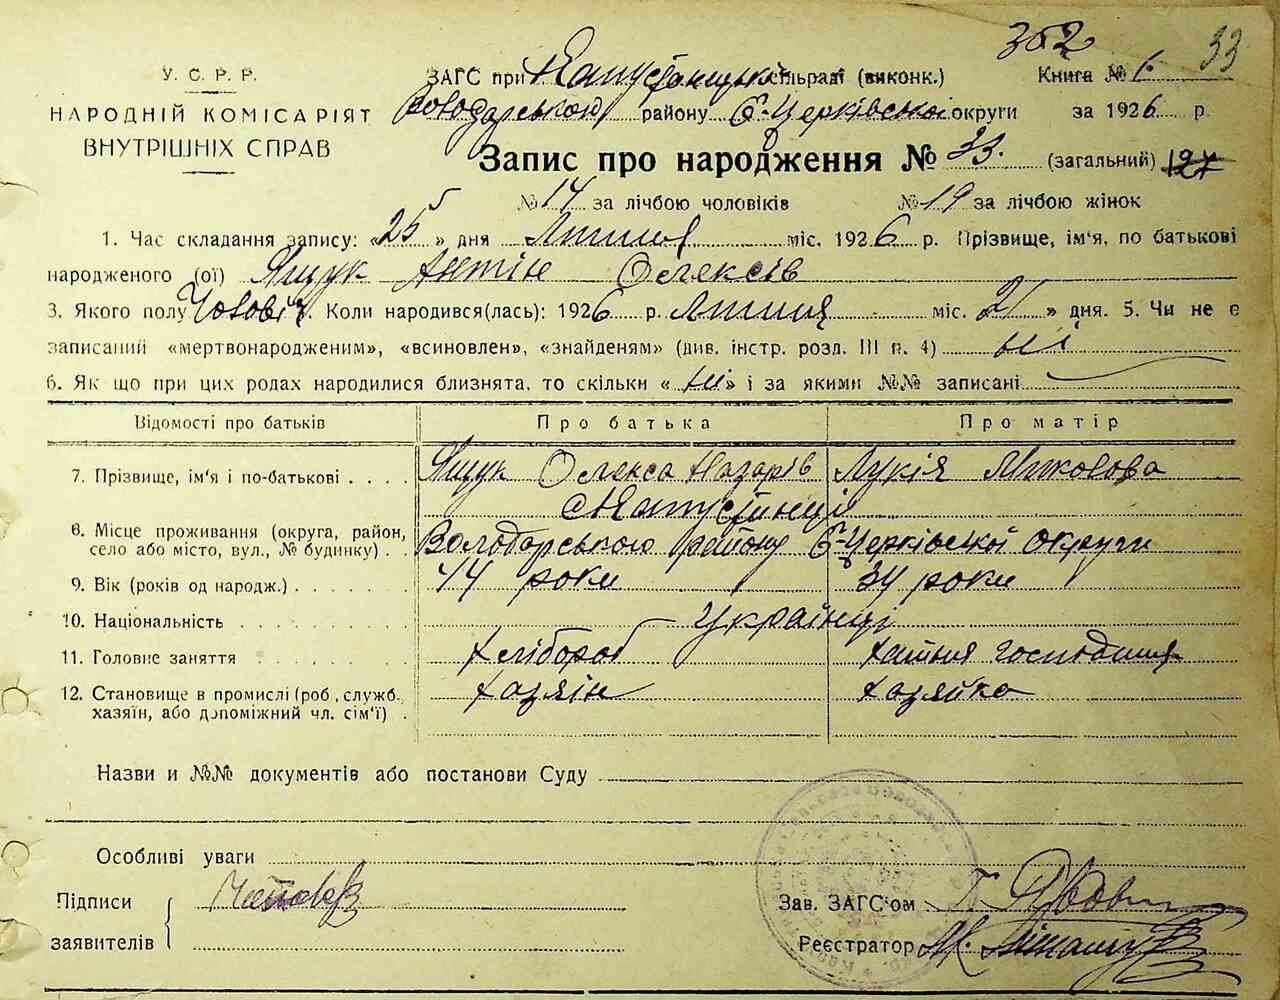 352 33
У. С. Р. Р.
ЗАГС при Капустинській сільраді (виконк.) Книга № 1.
НАРОДНІЙ КОМІСАРІЯТ
ВНУТРІШНІХ СПРАВ
Володарського району Б-Церківської округи за 1926 р.
Запис про народження № 33. (загальний) 127
№ 14 за лічбою чоловіків № 19 за лічбою жінок
1. Час складання запису: «25» дня Липня міс. 1926 р. Прізвище, ім'я, по батькові
народженого (ої) Ящук Антін Олексів
3. Якого полу Чоловіч. Коли народився(лась): 1926 р. Липня міс. 21 » дня. 5. Чи не є
записаний «мертвонародженим», «всиновлен», «знайденям» (див. інстр. розд. III п. 4) ні
6. Як що при цих родах народилися близнята, то скільки « ні» і за якими №№ записані
Відомості про батьків Про батька Про матір
7. Прізвище, ім'я і по-батькові Ящук Олекса Назарів Лукія Миколова
с. Капустинці
8. Місце проживання (округа, район,
село або місто, вул., № будинку) Володарського району Б-Церківської округи
9. Вік (років од народж.) 44 роки 34 роки
10. Національність Українці
11. Головне заняття Хлібороб хатня господиня
12. Становище в промислі (роб., служб., хазяїн хазяйка
хазяїн, або допоміжний чл. сім'ї)
Назви и №№ документів або постанови Суду
Особливі уваги
Підписи
заявителів
Зав. ЗАГС'ом
Реєстратор